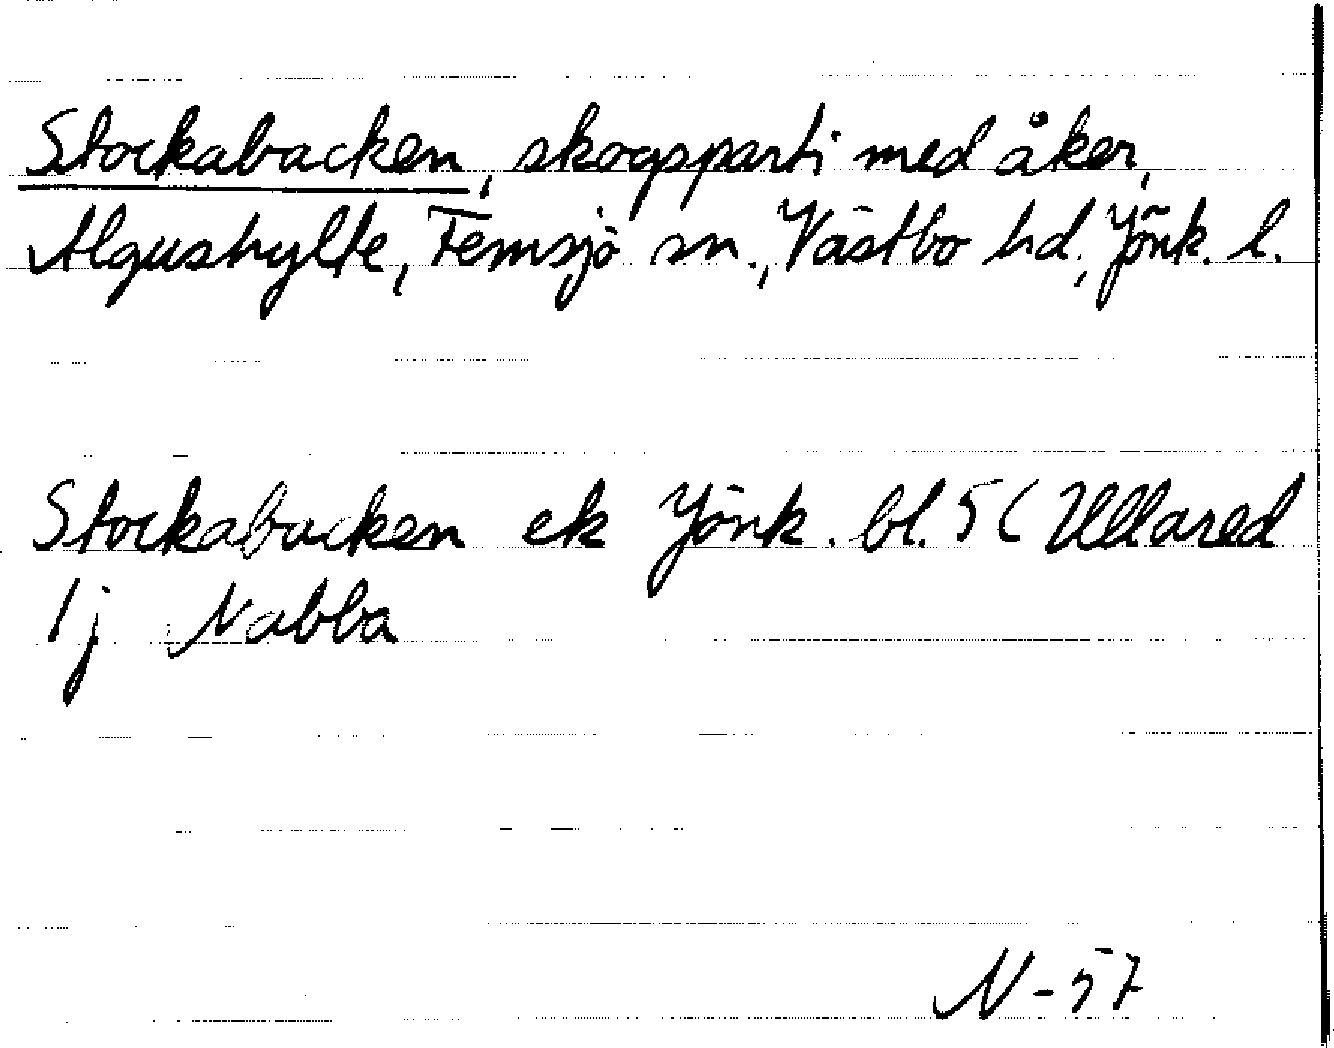 Stockabacken, skogsparti med åker,
Algushylte, Femsjö sn., Västbo hd., Jönk. l.
Stockabacken ek Jönk. bl. 5 (Ullared
1j Nabba
N-57